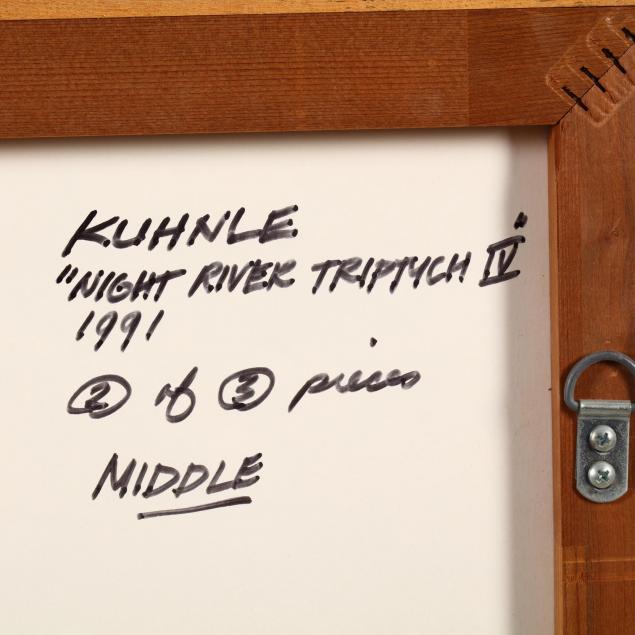 KUHNLE
"NIGHT RIVER TRIPTYCH IV"
1991
2 of 3 pieces
MIDDLE